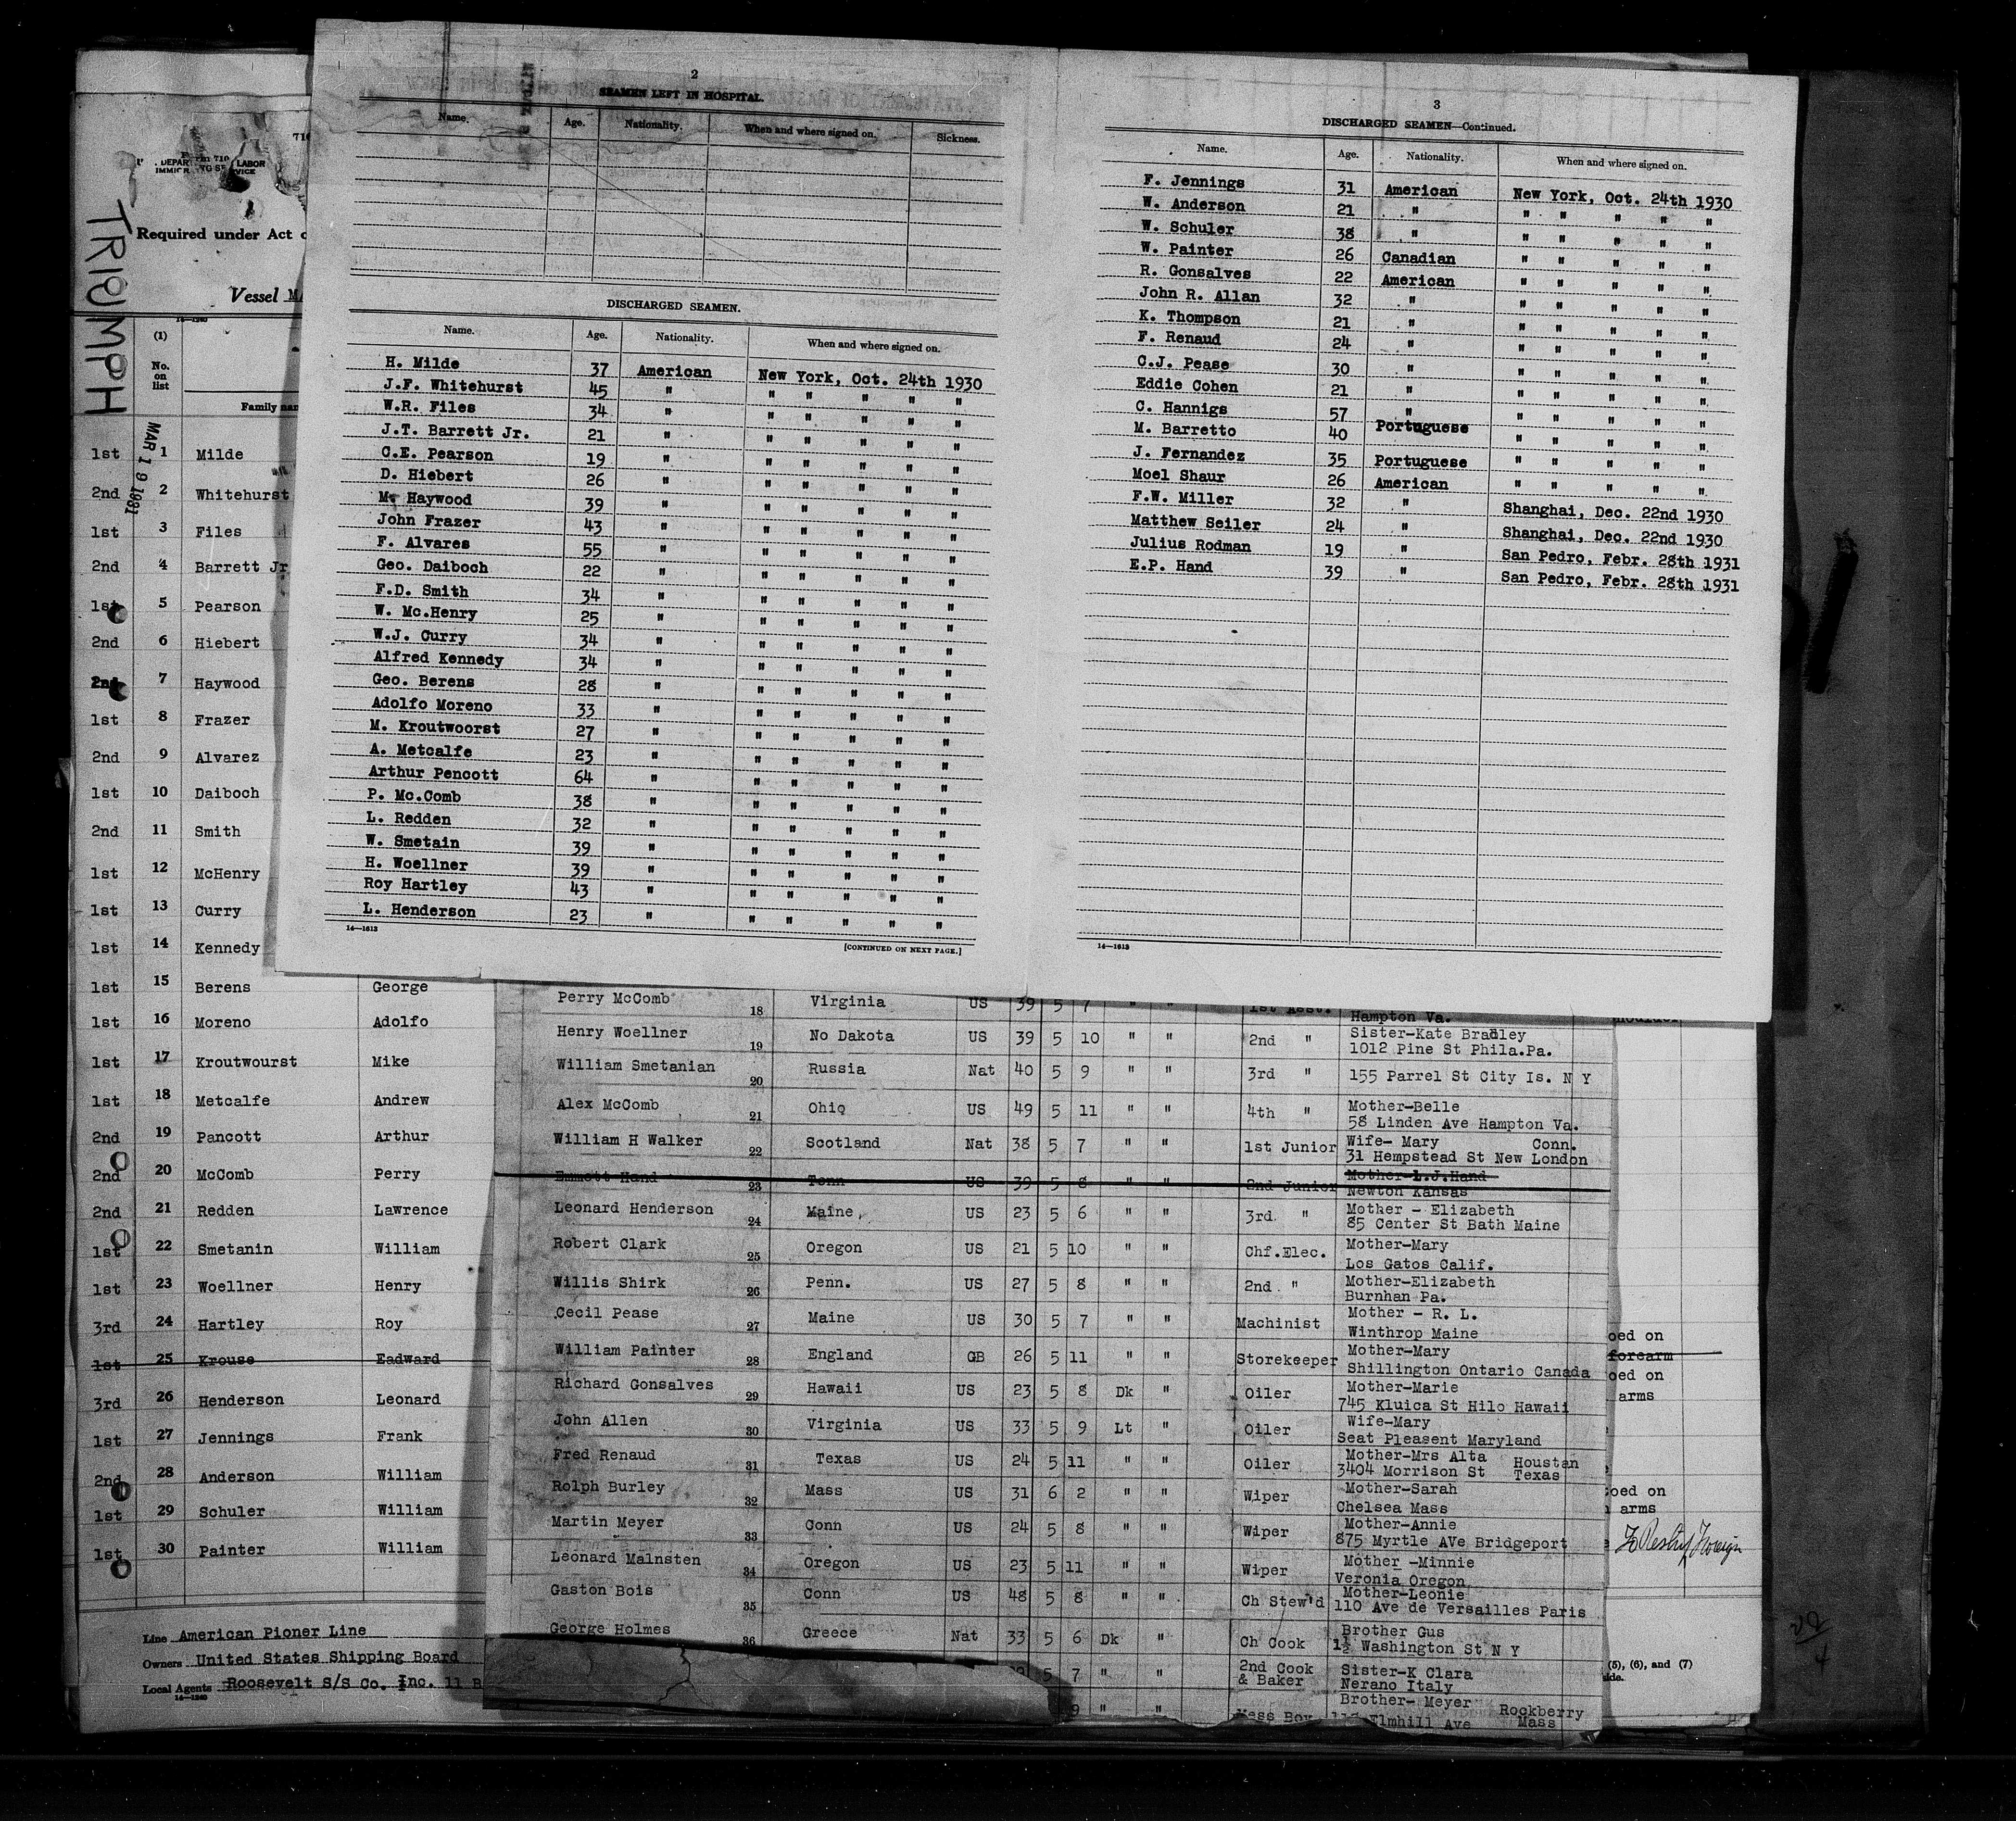 2
SEAMEN LEFT IN HOSPITAL.
Name. Age. Nationality. When and where signed on. Sickness.
DISCHARGED SEAMEN.
Name. Age. Nationality. When and where signed on.
H. Milde 37 American New York, Oct. 24th 1930
J.F. Whitehurst 45 " " " " " "
W.R. Files 34 " " " " " "
J.T. Barrett Jr. 21 " " " " " "
C.E. Pearson 19 " " " " " "
D. Hiebert 26 " " " " " "
M. Haywood 39 " " " " " "
John Frazer 43 " " " " " "
F. Alvares 55 " " " " " "
Geo. Daiboch 22 " " " " " "
F.D. Smith 34 " " " " " "
W. Mc.Henry 25 " " " " " "
W.J. Curry 34 " " " " " "
Alfred Kennedy 34 " " " " " "
Geo. Berens 28 " " " " " "
Adolfo Moreno 33 " " " " " "
M. Kroutwoorst 27 " " " " " "
A. Metcalfe 23 " " " " " "
Arthur Pencott 64 " " " " " "
P. Mc.Comb 38 " " " " " "
L. Redden 32 " " " " " "
W. Smetain 39 " " " " " "
H. Woellner 39 " " " " " "
Roy Hartley 43 " " " " " "
L. Henderson 23 " " " " " "
14—1613
[CONTINUED ON NEXT PAGE.]
3
DISCHARGED SEAMEN—Continued.
Name. Age. Nationality. When and where signed on.
F. Jennings 31 American New York, Oct. 24th 1930
W. Anderson 21 " " " " " "
W. Schuler 38 " " " " " "
W. Painter 26 Canadian " " " " "
R. Gonsalves 22 American " " " " "
John R. Allan 32 " " " " " "
K. Thompson 21 " " " " " "
F. Renaud 24 " " " " " "
C.J. Pease 30 " " " " " "
Eddie Cohen 21 " " " " " "
C. Hannigs 57 " " " " " "
M. Barretto 40 Portuguese " " " " "
J. Fernandez 35 Portuguese " " " " "
Moel Shaur 26 American " " " " "
F.W. Miller 32 " Shanghai, Dec. 22nd 1930
Matthew Seiler 24 " Shanghai, Dec. 22nd 1930
Julius Rodman 19 " San Pedro, Febr. 28th 1931
E.P. Hand 39 " San Pedro, Febr. 28th 1931
14—1613
710
LABOR
Required under Act
Vessel
TRIUMPH
MAR 19 1931
(1)
No. on list
Family
1st 1 Milde
2nd 2 Whitehurst
1st 3 Files
2nd 4 Barrett Jr
1st 5 Pearson
2nd 6 Hiebert
2nd 7 Haywood
1st 8 Frazer
2nd 9 Alvarez
1st 10 Daiboch
2nd 11 Smith
1st 12 McHenry
1st 13 Curry
1st 14 Kennedy
1st 15 Berens George
1st 16 Moreno Adolfo
1st 17 Kroutwourst Mike
1st 18 Metcalfe Andrew
2nd 19 Pancott Arthur
2nd 20 McComb Perry
2nd 21 Redden Lawrence
1st 22 Smetanin William
1st 23 Woellner Henry
3rd 24 Hartley Roy
1st 25 Krouse Eadward
3rd 26 Henderson Leonard
1st 27 Jennings Frank
2nd 28 Anderson William
1st 29 Schuler William
1st 30 Painter William
Line American Pioner Line
Owners United States Shipping Board
Local Agents Roosevelt S/S Co. Inc. 11 B
14—1240
Perry McComb 18 Virginia US 39 5 7 " " 1st Asst.
Hampton Va.
Henry Woellner 19 No Dakota US 39 5 10 " " 2nd " Sister-Kate Bradley
1012 Pine St Phila.Pa.
William Smetanian 20 Russia Nat 40 5 9 " " 3rd " 155 Parrel St City Is. N Y
Alex McComb 21 Ohio US 49 5 11 " " 4th " Mother-Belle
58 Linden Ave Hampton Va.
William H Walker 22 Scotland Nat 38 5 7 " " 1st Junior Wife- Mary Conn.
31 Hempstead St New London
Emmett Hand 23 Tenn US 39 5 8 " " 2nd Junior Mother-L.J.Hand
Newton Kansas
Leonard Henderson 24 Maine US 23 5 6 " " 3rd. " Mother - Elizabeth
85 Center St Bath Maine
Robert Clark 25 Oregon US 21 5 10 " " Chf.Elec. Mother-Mary
Los Gatos Calif.
Willis Shirk 26 Penn. US 27 5 8 " " 2nd " Mother-Elizabeth
Burnhan Pa.
Cecil Pease 27 Maine US 30 5 7 " " Machinist Mother - R. L.
Winthrop Maine
William Painter 28 England GB 26 5 11 " " Storekeeper Mother-Mary
Shillington Ontario Canada
Richard Gonsalves 29 Hawaii US 23 5 8 Dk " Oiler Mother-Marie
745 Kluica St Hilo Hawaii
John Allen 30 Virginia US 33 5 9 Lt " Oiler Wife-Mary
Seat Pleasent Maryland
Fred Renaud 31 Texas US 24 5 11 " " Oiler Mother-Mrs Alta
3404 Morrison St Houstan Texas
Rolph Burley 32 Mass US 31 6 2 " " Wiper Mother-Sarah
Chelsea Mass
Martin Meyer 33 Conn US 24 5 8 " " Wiper Mother-Annie
875 Myrtle AVe Bridgeport
Leonard Malnsten 34 Oregon US 23 5 11 " " Wiper Mother -Minnie
Veronia Oregon
Gaston Bois 35 Conn US 48 5 8 " " Ch Stew'd Mother-Leonie
110 Ave de Versailles Paris
George Holmes 36 Greece Nat 33 5 6 Dk " Ch Cook Brother Gus
1½ Washington St N Y
5 7 " " 2nd Cook & Baker Sister-K Clara
Nerano Italy
9 " " Mess Boy Brother- Meyer Rockberry
Elmhill Ave Mass
oed on
forearm
oed on
arms
oed on
arms
(5), (6), and (7)